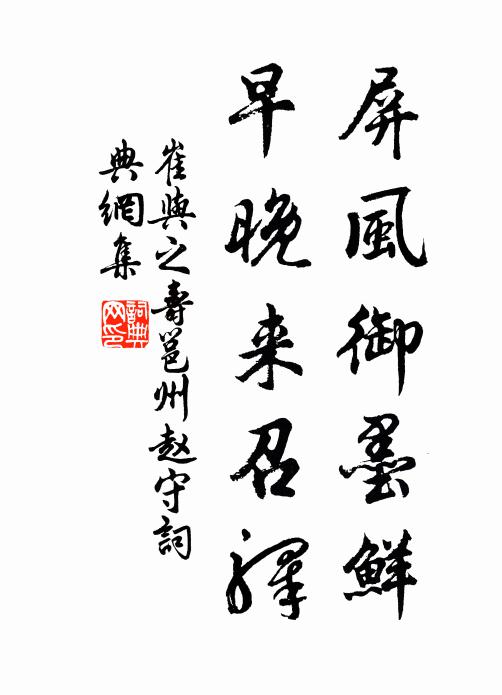 屏風御墨鮮
早晚来召驛
崔與之壽邕州赵守詞
典網集
詞典網印